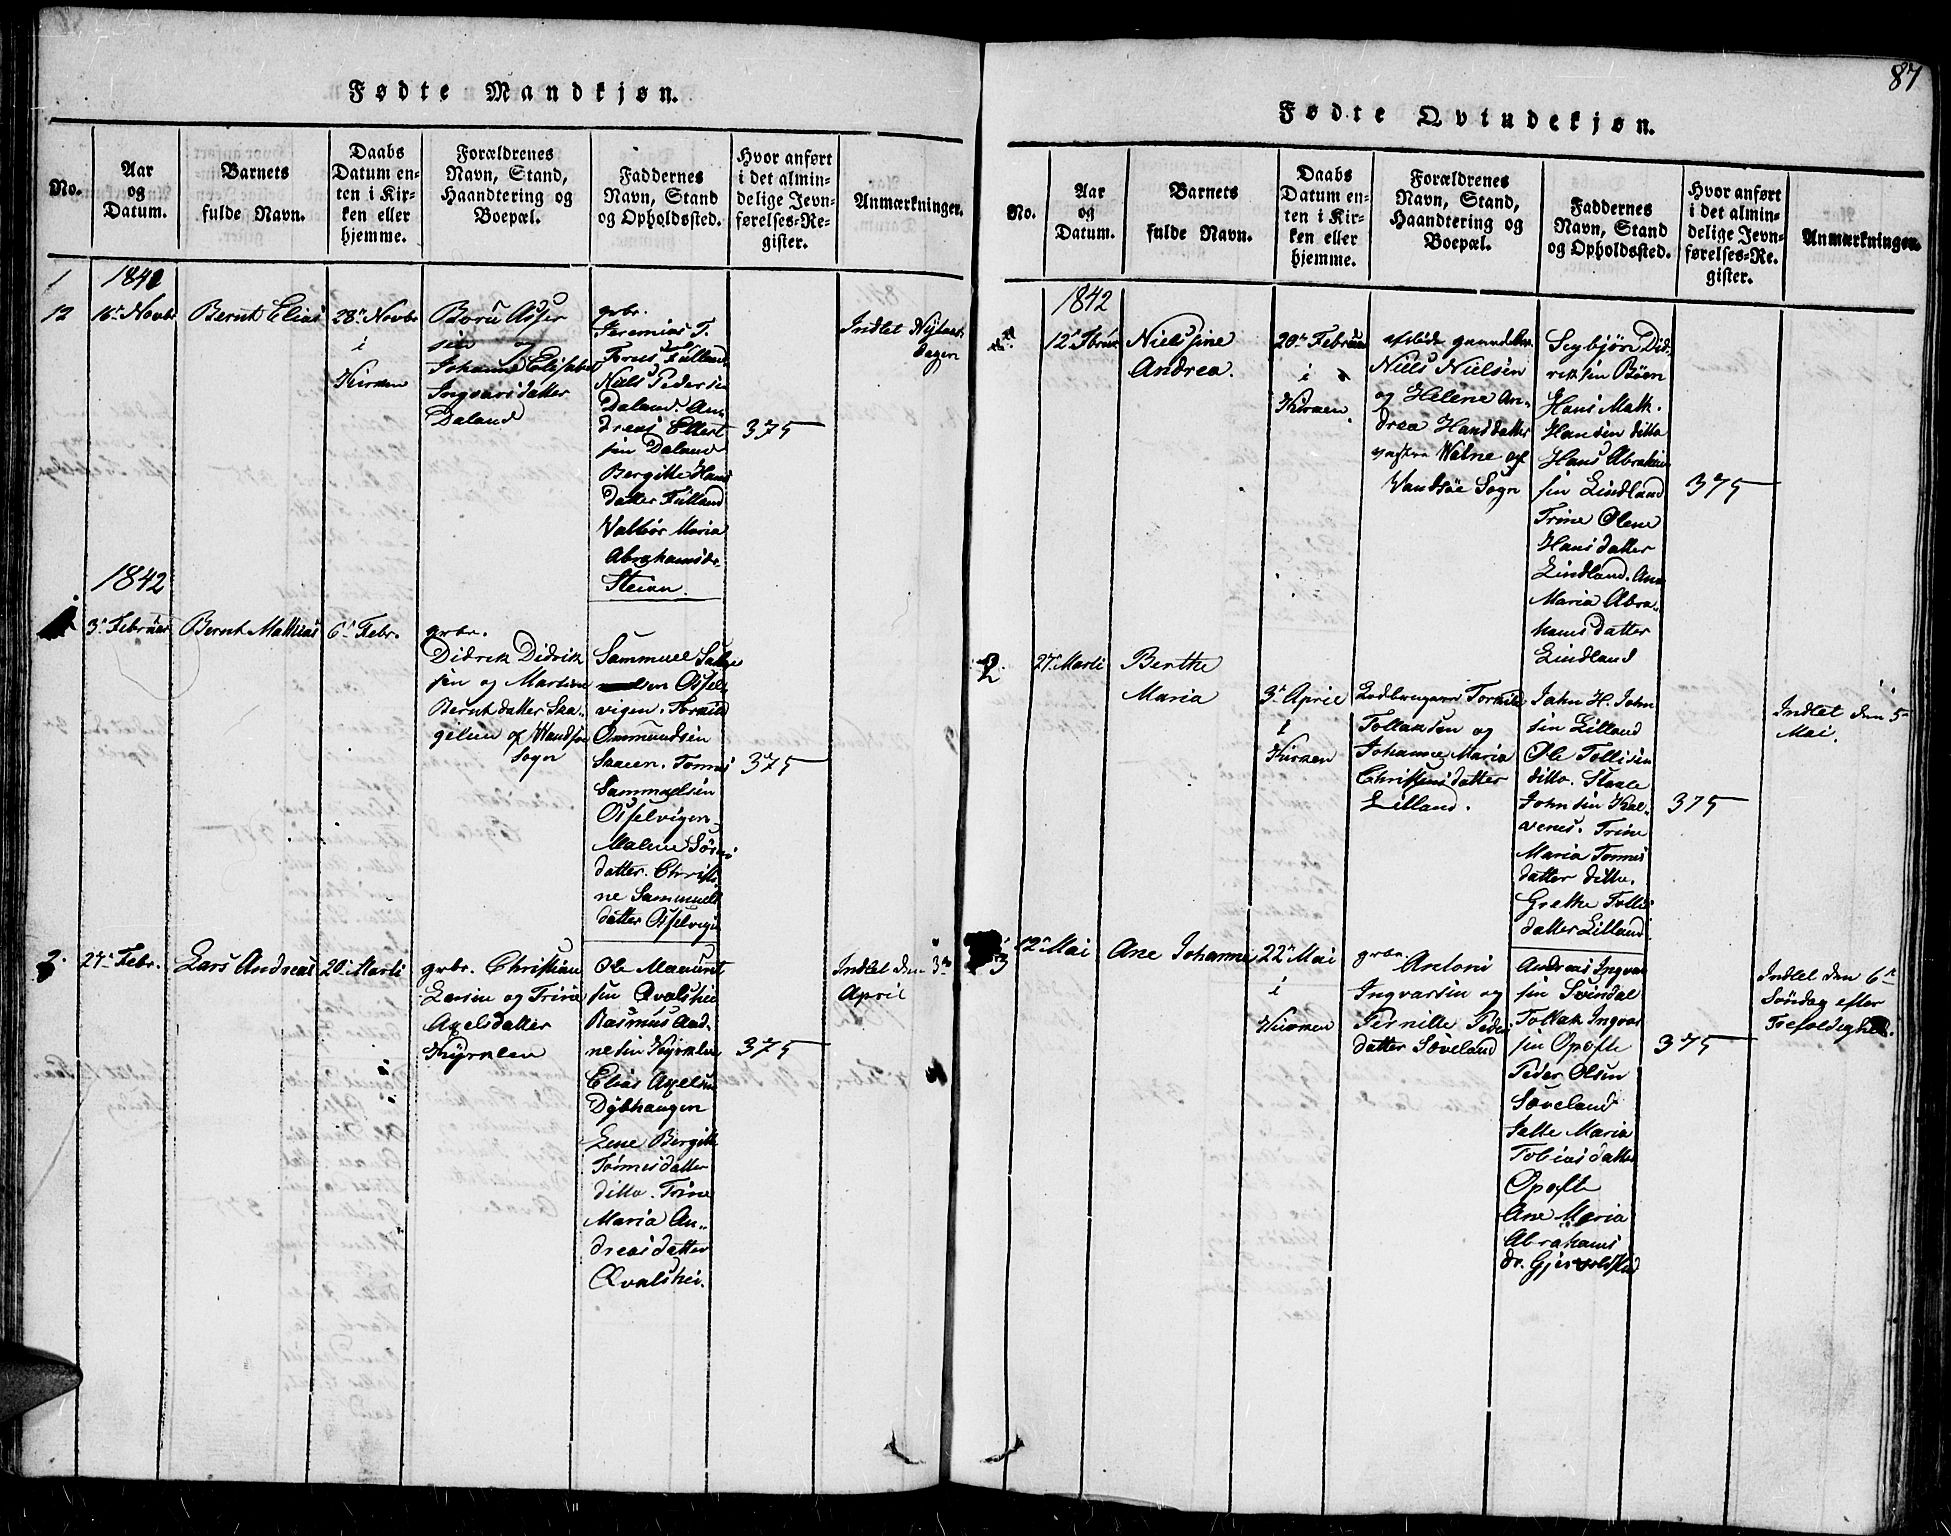 Fødte Mandkjøn.
No.
Aar
og
Datum.
Barnets
fulde Navn.
Daabs
Datum en-
ten i Kir-
ken eller
hjemme.
Forældrenes
Navn, Stand,
Haandtering og
Boepæl.
Faddernes
Navn, Stand
og Opholdssted.
Hvor anført
i det almin-
delige Jevn-
førelses-Re-
gister.
Anmærkninger.
1841
12
16de Novbr
Bernt Elias
28de Novbr
i
Kirken
Børu Asser
sen og
Johanne Elisabet
Ingvarsdatter
Daland
gbr.
Jeremias T.
Fulland
Niels Pedersen
Daland. An-
dreas Ellert
sen Daland
Bergitte Hans
datter Fulland
Valbor Maria
Abrahamsdr
Steinn.
375
Indlet Nytaars
dagen
1842
3de Februar
Bernt Mathias
6te Febr.
gbr.
Didrik Didrik
sen og Martine
Bernt datter Ska-
gelien af Vandsøe
Sogn
Sammuel Salve
sen Ossel
vigen. Tormod
Ommundsen
Skaeen. Tønnes
Sammuelsen
Osselvigen
Malene Sørens
datter. Christi
ne Sammuels
datter Osselvigen
375
2.
27de Febr.
Lars Andreas
20de Marti
gbr. Christian
Larsen og Trine
Axelsdatter
Kyrklen
Ole Maurent
sen Qvalshei
Rasmus Aad-
nesen Kyrklen
Elias Axelsen
Dybhaugen
Lene Bergitte
Tønnesdatter
ditto. Trine
Maria An-
dreasdatter
Qvalshei.
375
Indlet den 3de
April
87
Fødte Qvindekjøn.
No.
Aar
og
Datum.
Barnets
fulde Navn.
Daabs
Datum en-
ten i Kir-
ken eller
hjemme.
Forældrenes
Navn, Stand,
Haandtering og
Boepæl.
Faddernes
Navn, Stand
og Opholdssted.
Hvor anført
i det almin-
delige Jevn-
førelses-Re-
gister.
Anmærkninger.
1842
12te Febrr
Nielssine
Andrea.
20de Februar
i
Kirken.
Niels Nielsen
og Helene An-
drea Hansdatter
Walne af
Vandsøe Sogn
Seybjørn Did-
riksen Bøen
Hans Math.
Hansen ditto
Hans Abraham
sen Lindland
Trine Olene
Hansdatter
Lindland. Ane
Maria Abra-
hamsdatter
Lindland
375
2.
27de Marti
Berthe
Maria
3de April
i
Kirken
Tollaksen og
Johanne Maria
Christensdatter
Lilland.
John H. John
sen Lilland
Ole Tollisen
ditto. Staale
Johnsen Kal-
venes. Trine
Maria Tønnes
datter ditto.
Grethe Tollis
datter Lilland.
375
Indlet den 5te
Mai.
3
12te Mai
Ane Johanne
22de Mai
i
Kirken
gbr. Antoni
Ingvarsen og
Pernille Peders
datter Søveland
Andreas Ingvar
sen Svindal
Tollak Ingvar
sen Opofte
Peder Olsen
Søveland
Jalle Maria
Tobiasdatter
Opofte
Ane Maria
Abrahams
dr. Gjervoldstad
375
Indlet den 6te
Søndag efter
Trefoldighed.